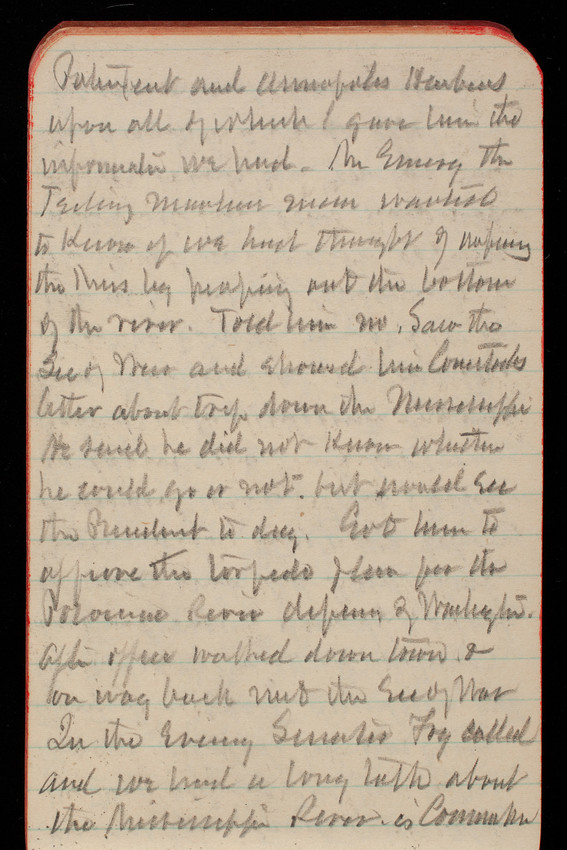 Patuxent and Annapolis Harbors
upon all of which I gave him the
information we had. Mr Emery the
Testing Machine man wanted
to know if we had thought of
the Miss by out the bottom
of the river. Told him no. Saw the
Sec of War and showed him Comstocks
letter about trip down the Mississippi
He said he did not know whether
he could go or not, but would see
the President to day. Got him to
approve the torpedo plan for the
Potomac River defense of Washington.
After office walked down town &
on way back met the Sec of War
In the Evening Senator Fry called
and we had a long talk about
the Mississippi River